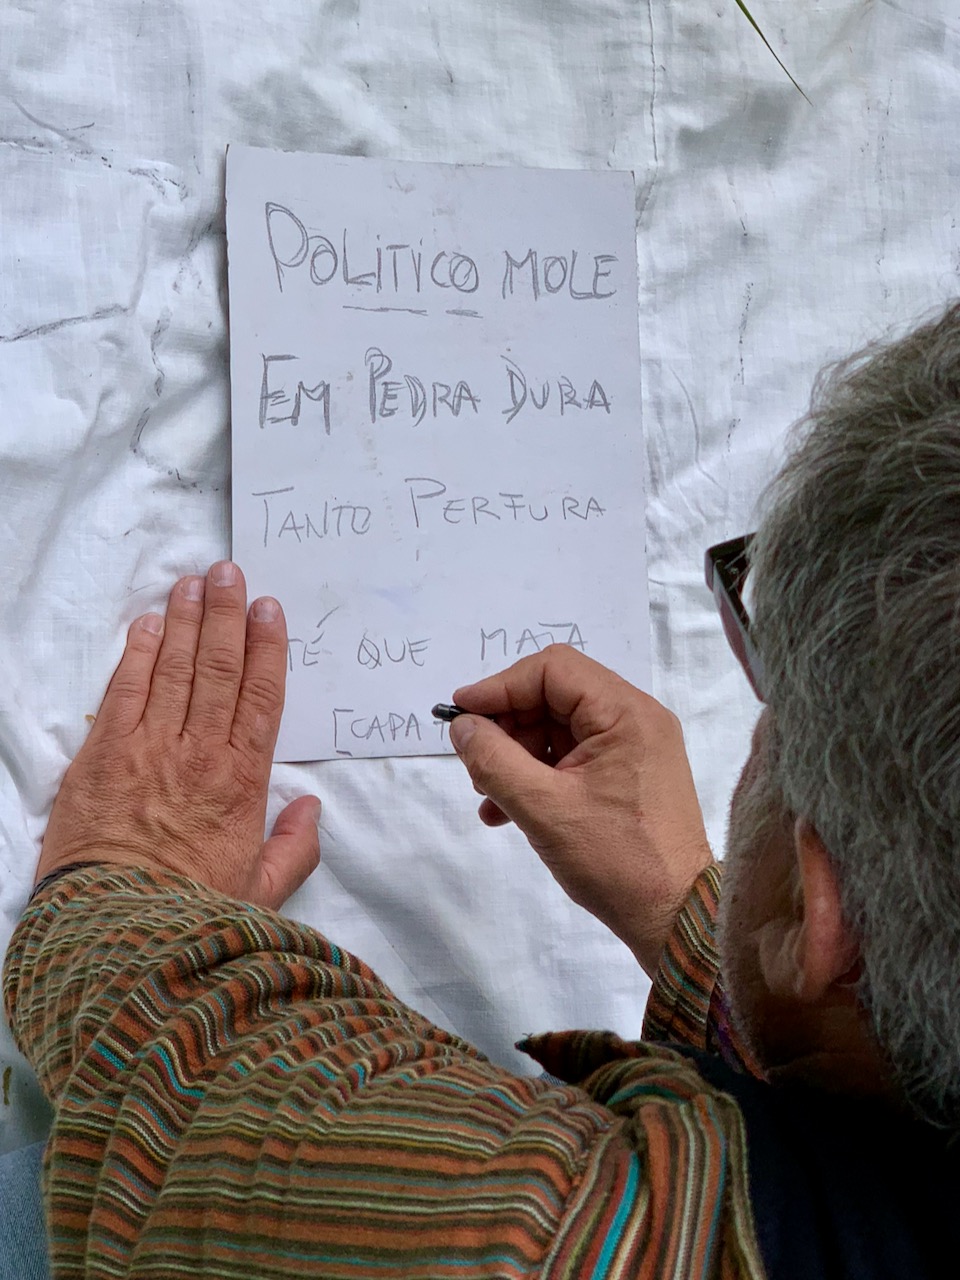 POLITICO MOLE
EM PEDRA DURA
TANTO PERFURA
TÉ QUE MATA
[CAPA